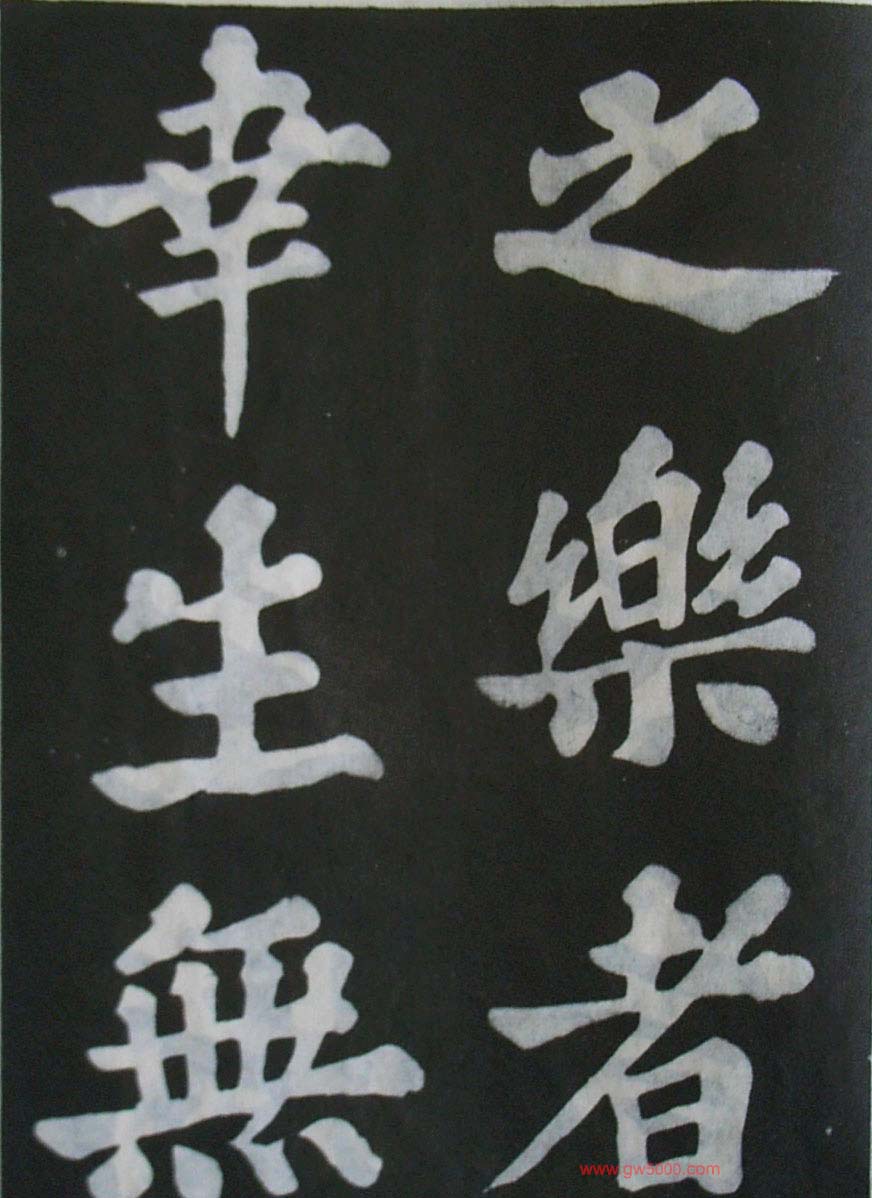 之樂者
幸生無
www.gw5000.com